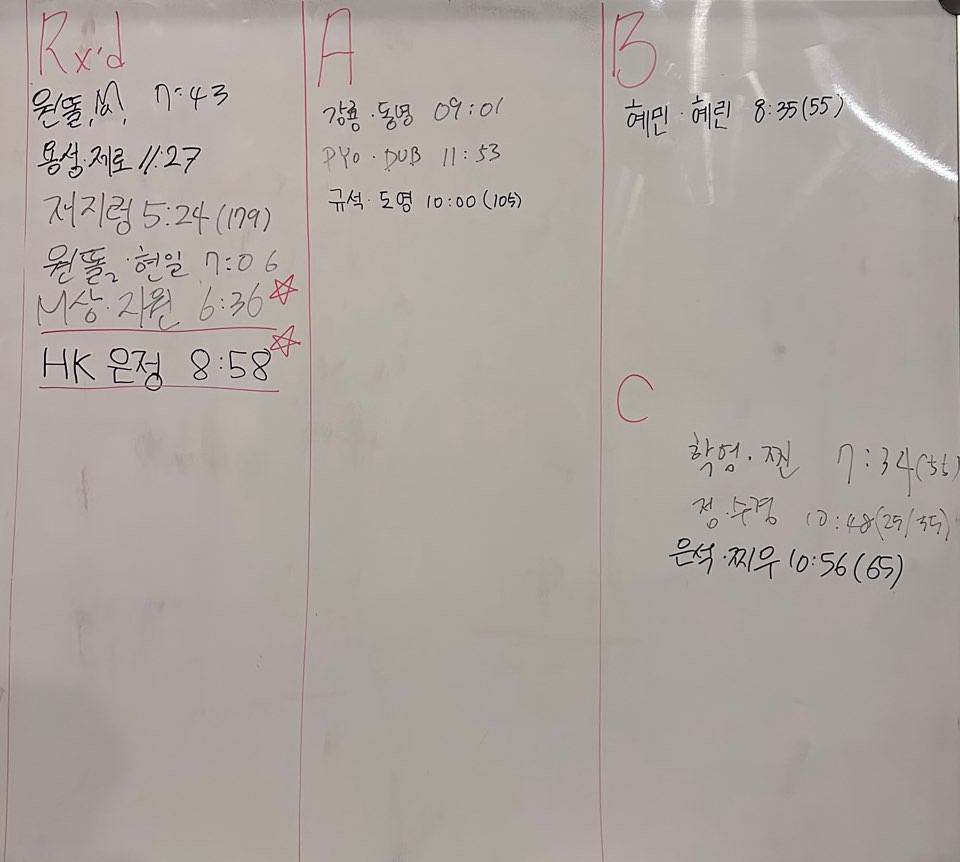 Rx'd
원똘, 7:43
용성·제로 11:27
저지렁 5:24(179)
원똘2·현일 7:06
M상·지원 6:36
HK 은정 8:58
A
강룡·동명 09:01
PYO·DUB 11:53
규석·도영 10:00(105)
B
혜민·혜린 8:35(55)
C
학엄·찐 7:34(55)
정·수경 10:48(25/35)
은석·찌우 10:56(65)